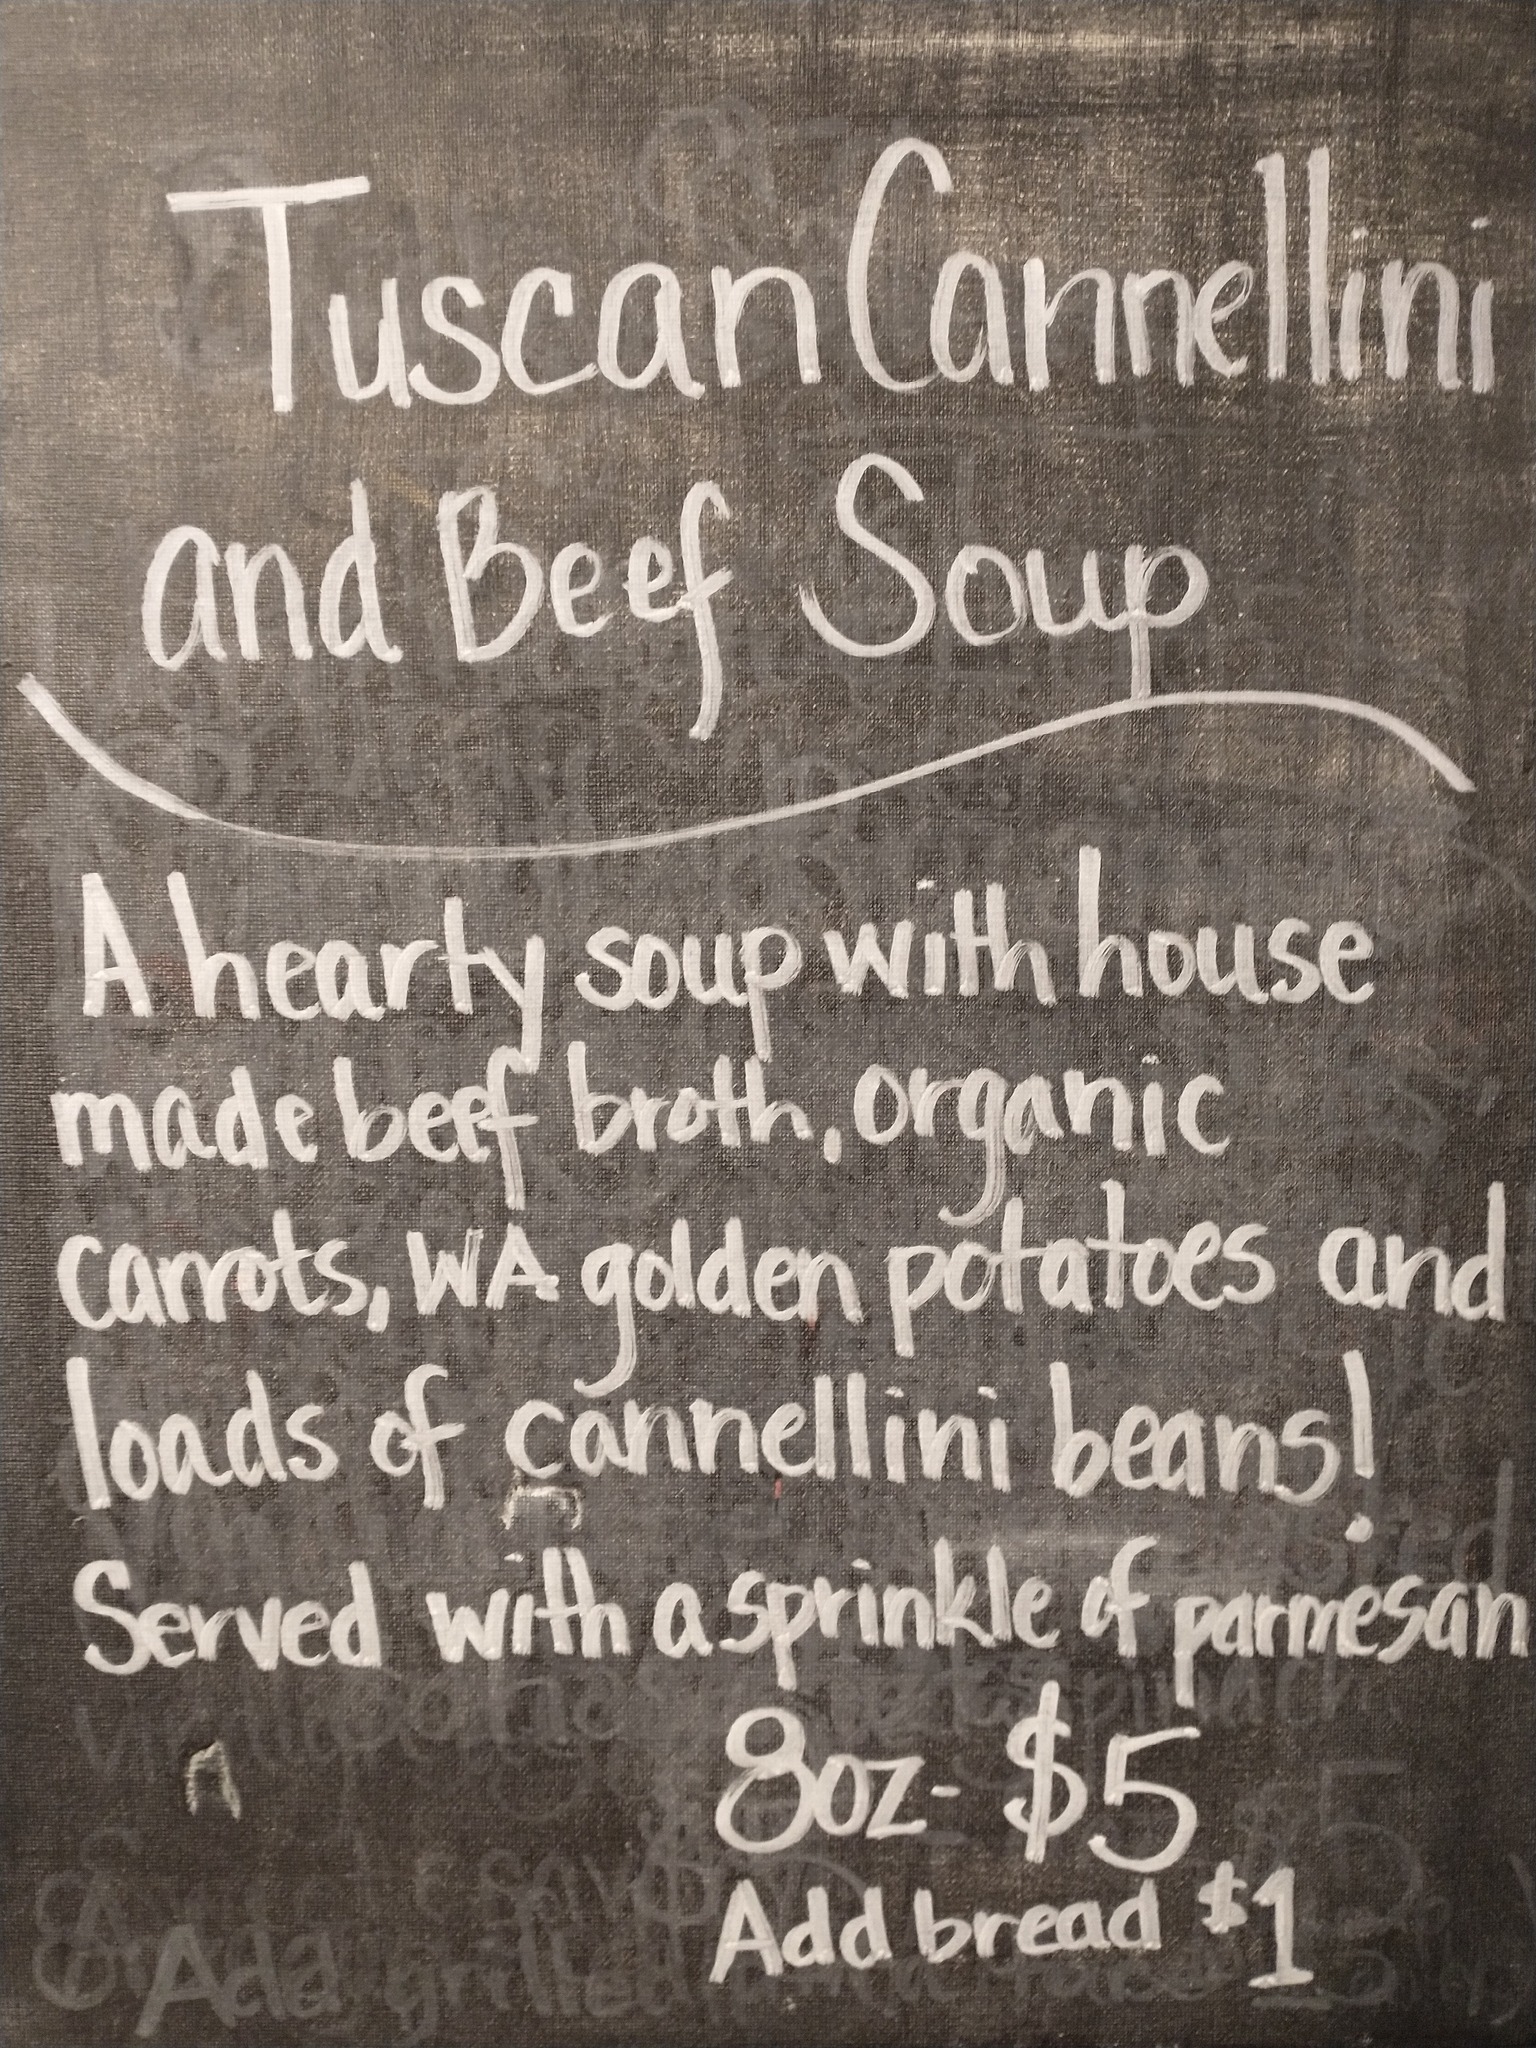 Tuscan Cannellini
and Beef Soup
A hearty soup with house
made beef broth, organic
carrots, WA golden potatoes and
loads of cannellini beans!
Served with a sprinkle of parmesan
8oz- $5
Add bread $1
Add grilled